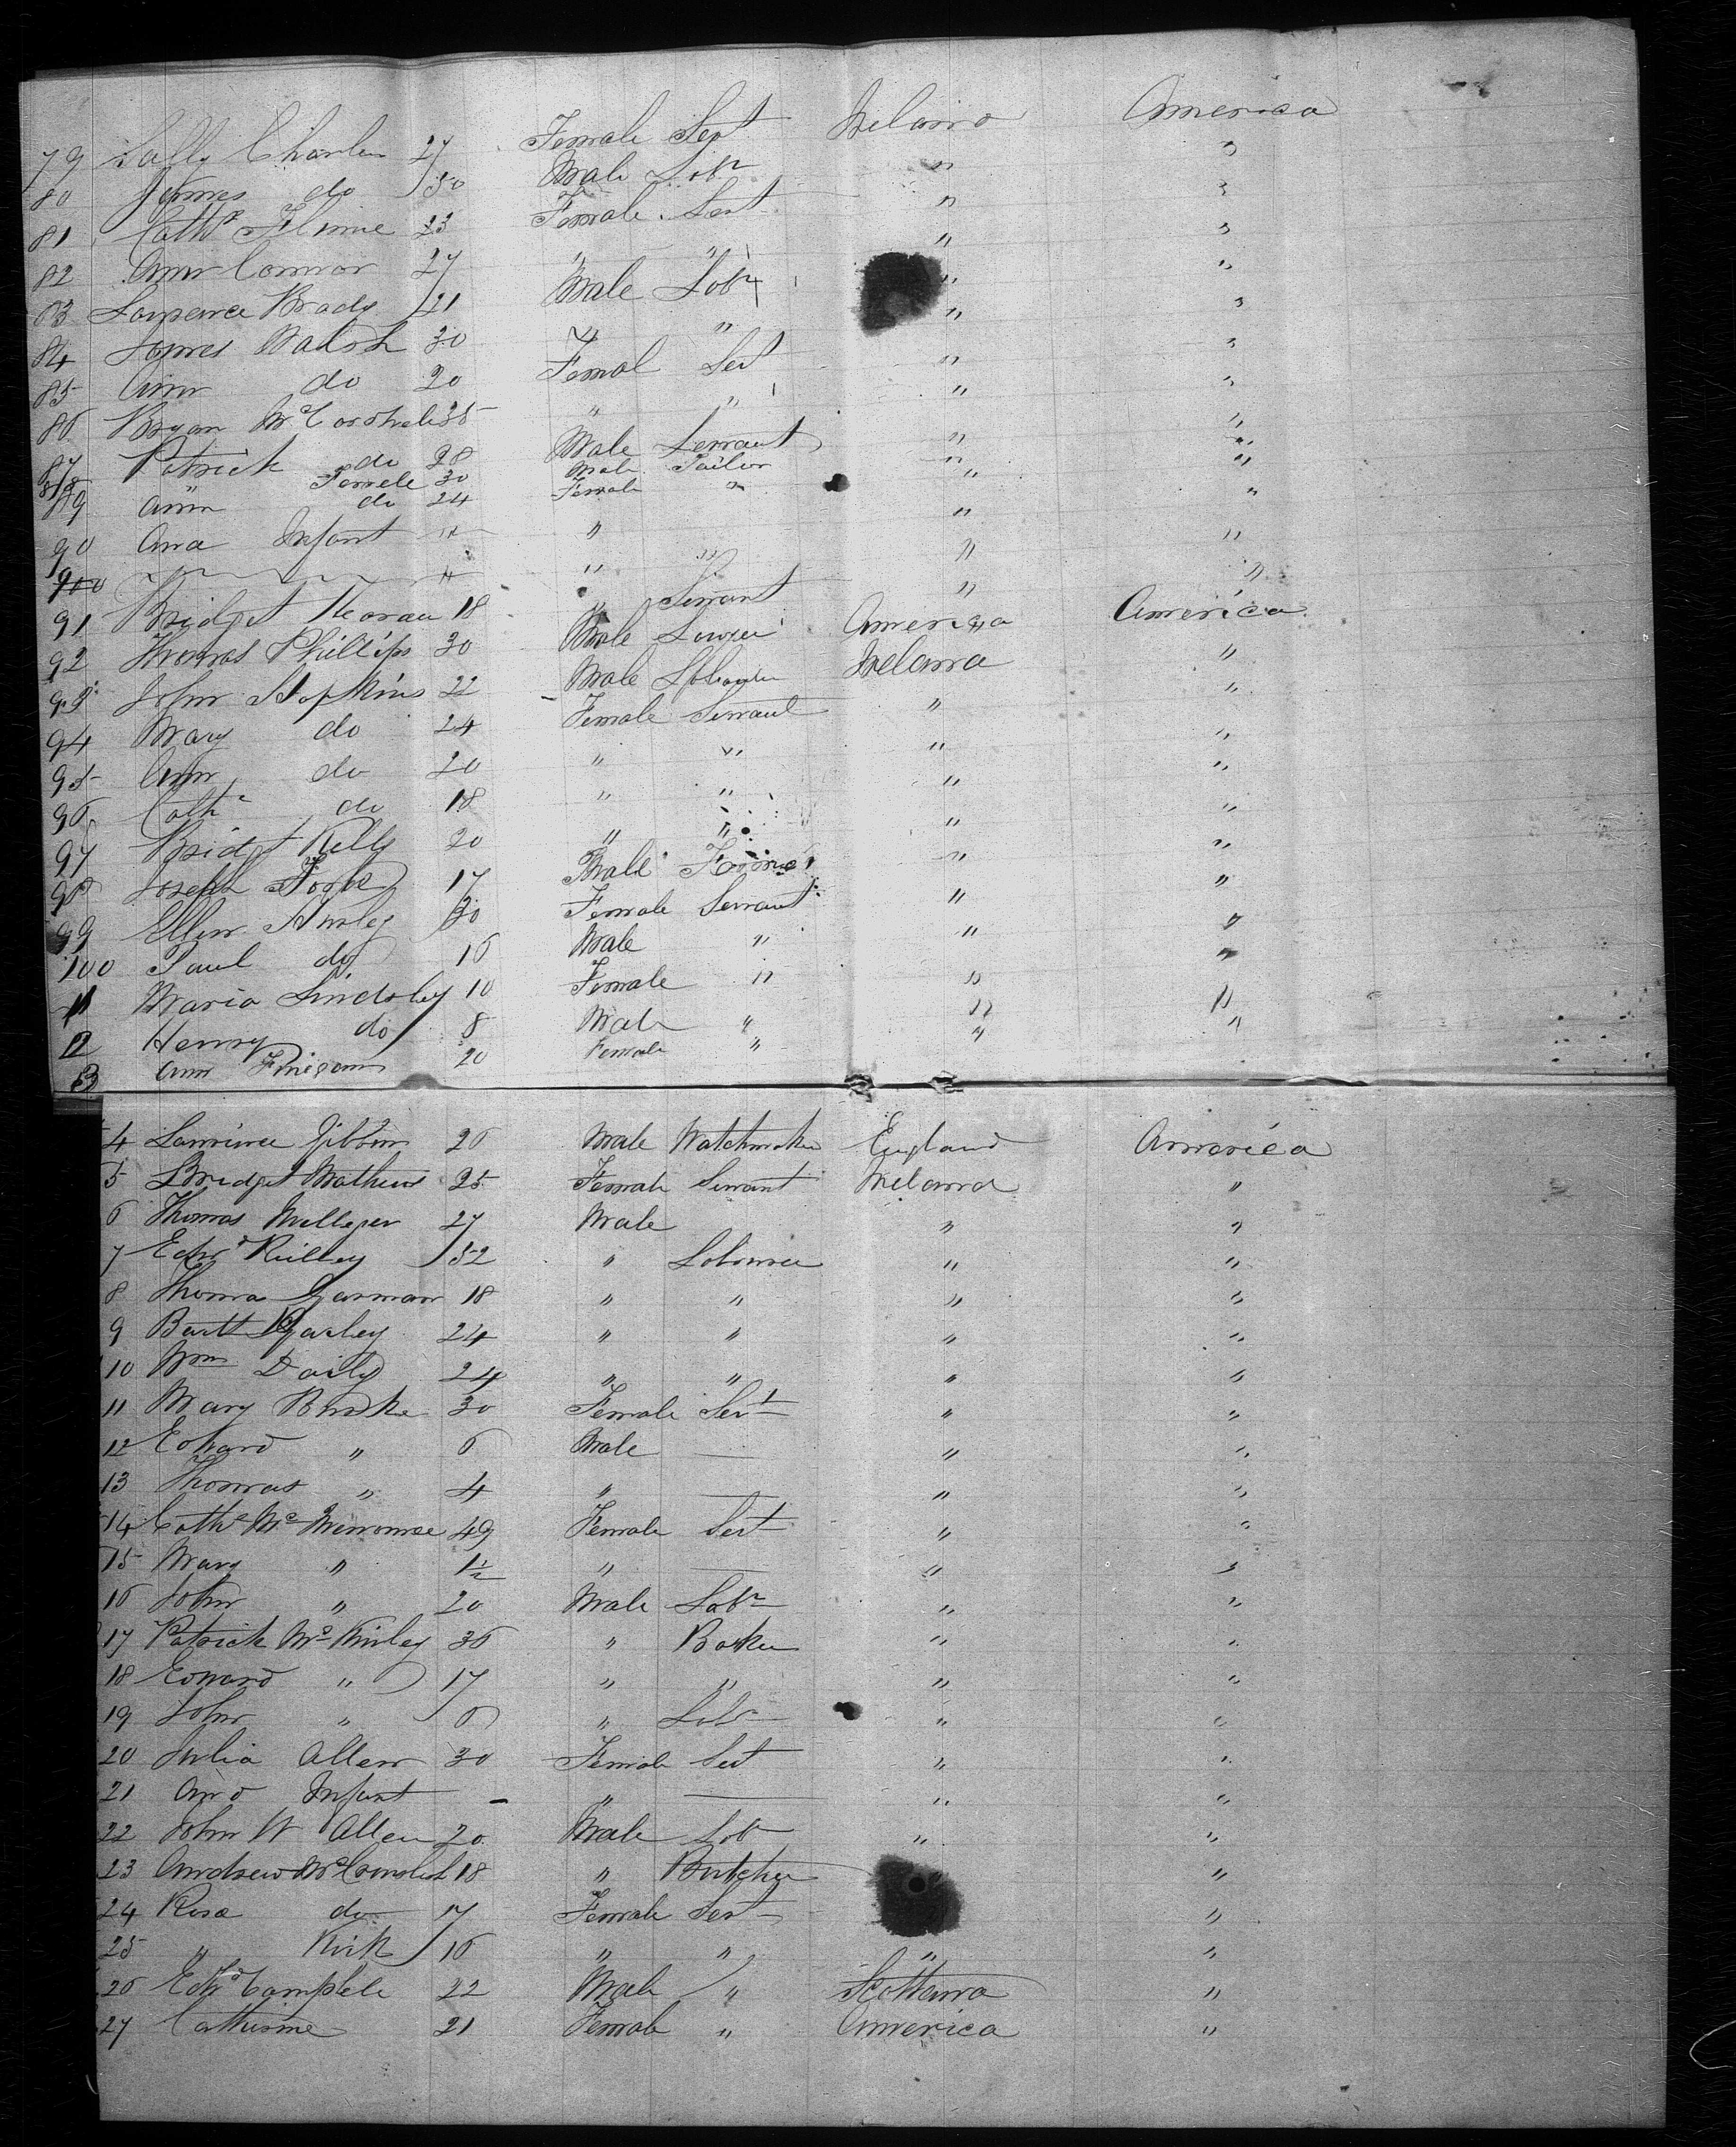 79 Sally Charles 27 Female Sert Ireland America
80 James do 30 Male Labr " "
81 Cathe Flinne 23 Female Sert " "
82 Ann Connor 27 " " " "
83 Lawrence Brady 21 Male Labr " "
84 James Walsh 30 " " " "
85 Ann do 20 Femal Sert " "
86 Bryan 35 " " " "
87 Patrick do 28 Male Servant " "
88 " 30 Male Tailor " "
89 Ann do 24 Female " " "
90 Ana Infant " " " "
100 " " " " "
91 Bridget 18 " Servant " "
92 Thomas Phillips 30 Male America America
93 John Hopkins 22 Male Ireland "
94 Mary do 24 Female Servant " "
95 Ann do 20 " " " "
96 Cathe do 18 " " " "
97 Bridget Kelly 20 " " " "
98 Joseph 17 Male " "
99 Ellen 30 Female Servant " "
100 Paul do 16 Male " " "
11 Maria Lindsley 10 Female " " "
12 Henry do 8 Male " " "
3 Ann Finigann 20 Female " " "
4 Lawrence Gibbon 26 Male Watchmaker England America
5 Bridget Mathews 25 Female Servant Ireland "
6 Thomas 27 Male " "
7 Edwd Reilley 32 " Labourer " "
8 Thomas Garman 18 " " " "
9 Bartt 24 " " " "
10 Wm Daily 24 " " " "
11 Mary Burke 30 Female Sert " "
12 Edward " 6 Male — " "
13 Thomas " 4 " — " "
14 Cathe 49 Female Sert " "
15 Mary " 1½ " — " "
16 John " 20 Male Labr " "
17 Patrick McKinley 36 " Baker " "
18 Edward " 17 " " " "
19 John " 6 " Labr " "
20 Julia Allen 30 Female Sert " "
21 And Infant - " — " "
22 John W Allen 20 Male Labr " "
23 Andrew 18 " Butcher " "
24 Rose do 17 Female Sert "
25 " Kirk 16 " " " "
26 Edwd Campbele 22 Male " Scotland "
27 Catherine 21 Female " America "